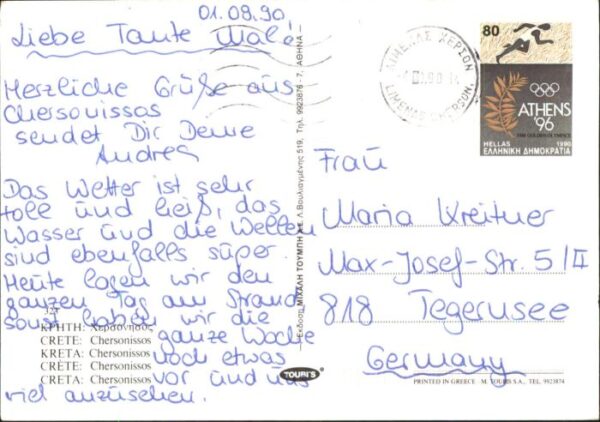 01.09.90
Liebe Tante Mala
Herzliche Grüße aus
Chersonissos
sendet Dir Deine
Andrea
Das Wetter ist sehr
toll und heiß, das
Wasser und die Wellen
sind ebenfalls süper.
Heute lagen wir den
ganzen Tag am Strand
sonst haben wir die
ganze Woche
noch etwas
vor und uns
viel anzusehen.
324
ΚΡΗΤΗ: Χερσόνησος
CRETE: Chersonissos
KRETA: Chersonissos
CRETE: Chersonissos
CRETA: Chersonissos
Έκδοση ΜΙΧΑΛΗ ΤΟΥΜΠΗ Α.Ε. Λ. Βουλιαγμένης 519, Τηλ. 9923876 - 7, ΑΘΗΝΑ
TOUBI'S
ΛΙΜΕΝΑΣ ΧΕΡΣΟΝ
LIMENAS CHERSON.
80
ATHENS
'96
THE GOLDEN OLYMPICS
HELLAS 1990
ΕΛΛΗΝΙΚΗ ΔΗΜΟΚΡΑΤΙΑ
Frau
Maria Kreitner
Max-Josef-Str. 5/II
818 Tegernsee
Germany
PRINTED IN GREECE M. TOUBIS S.A., TEL. 9923874